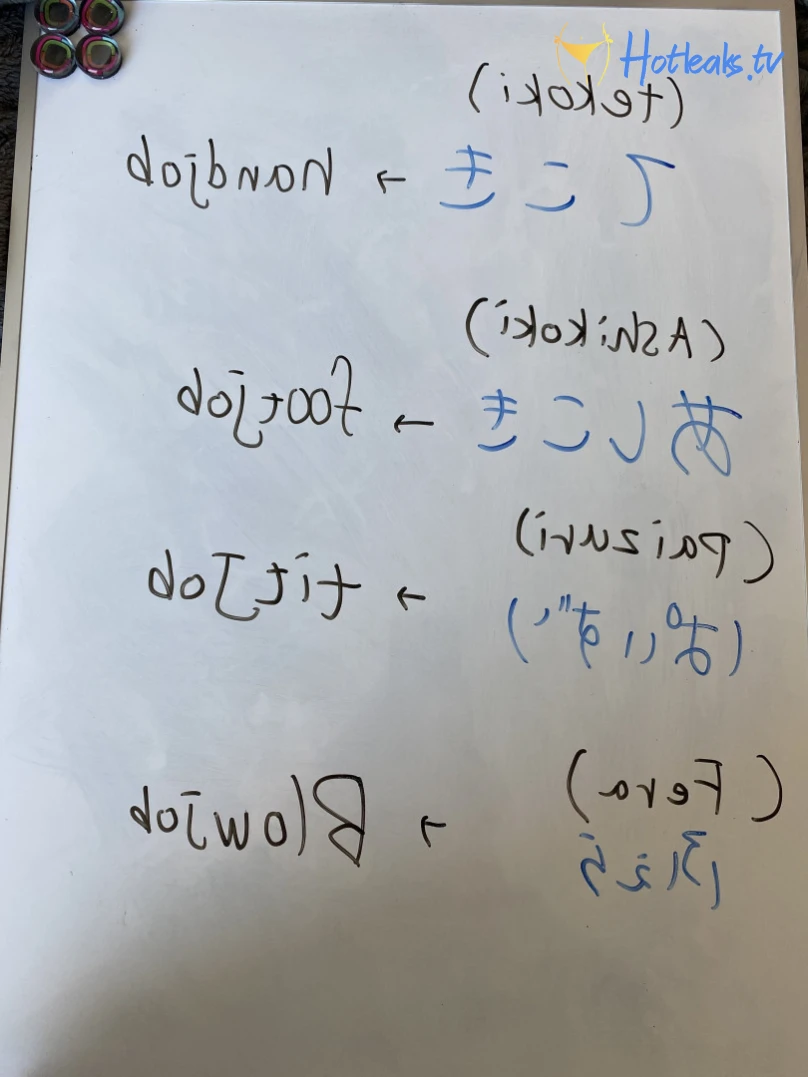 Hotleaks.tv
(tekoki)
てこき → handjob
(Ashikoki)
あしこき → footjob
(paizuri)
ぱいずり → titJob
(Fera)
ふぇら → Blowjob